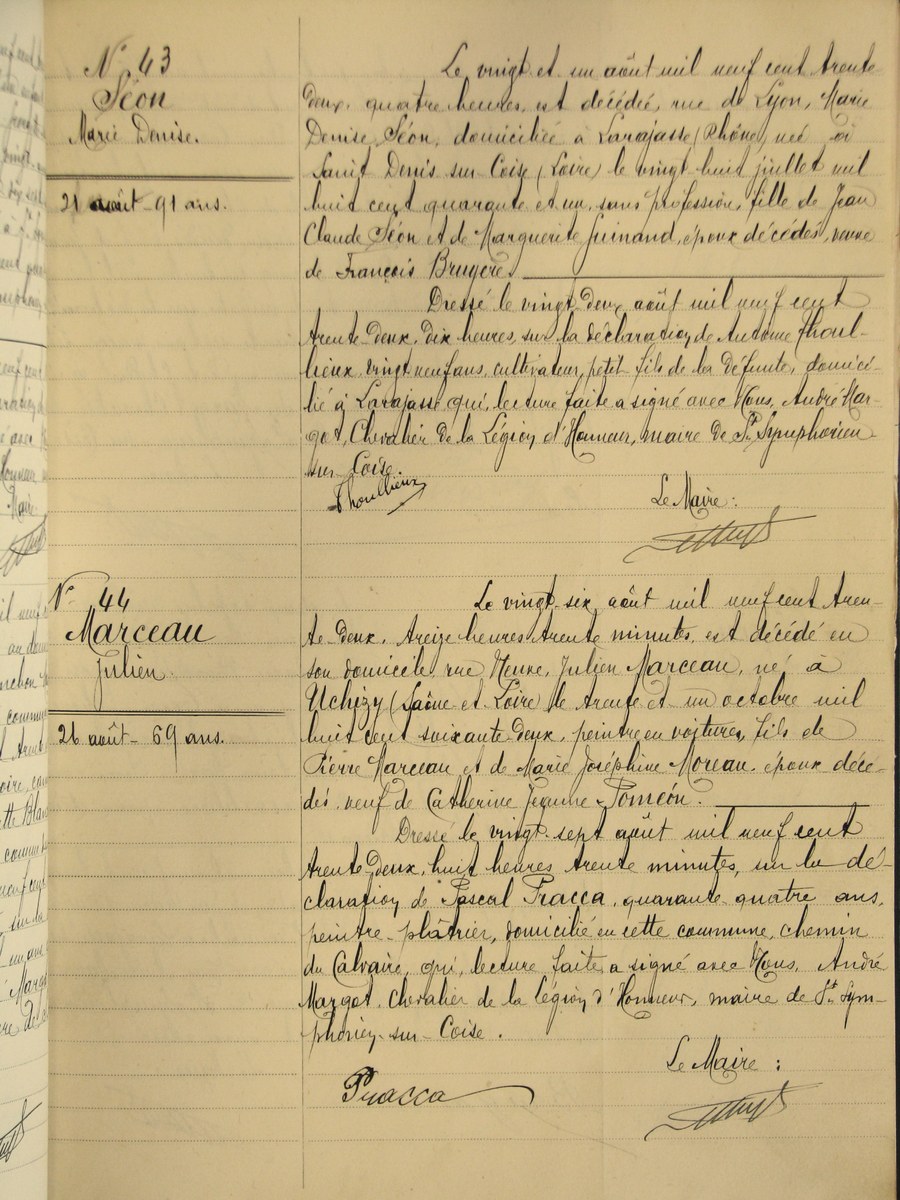 N° 43
Séon
Marie Denise.
21 août - 91 ans.
Le vingt et un août mil neuf cent trente
deux, quatre heures, est décédée, rue de Lyon, Marie
Denise Séon, domiciliée à Larajasse (Rhône) née à
Saint Denis sur Coise (Loire) le vingt huit juillet mil
huit cent quarante et un, sans profession, fille de Jean
Claude Séon et de Marguerite Guinand, époux décédés, veuve
de François Bruyère.
Dressé le vingt deux août mil neuf cent
trente deux, dix heures, sur la déclaration de Antoine Thoul-
lieux, vingt neuf ans, cultivateur, petit-fils de la défunte, domici-
lié à Larajasse qui, lecture faite a signé avec Nous, André Mar-
got, Chevalier de la Légion d'Honneur, maire de St Symphorien
sur-Coise.
Thoullieux
Le Maire :
N° 44
Marceau
Julien.
26 août - 69 ans.
Le vingt-six août mil neuf cent tren-
te-deux, treize heures trente minutes, est décédé en
son domicile, rue Neuve, Julien Marceau, né à
Uchizy (Saône et Loire) le trente et un octobre mil
huit cent soixante-deux, peintre en voitures, fils de
Pierre Marceau et de Marie Joséphine Moreau, époux décé-
dés, veuf de Catherine Jeanne
Dressé le vingt-sept août mil neuf cent
trente deux, huit heures trente minutes, sur la dé-
claration de Pascal Pracca, quarante-quatre ans,
peintre-plâtrier, domicilié en cette commune, chemin
du Calvaire, qui, lecture faite, a signé avec Nous, André
Margot, Chevalier de la Légion d'Honneur, maire de St Sym-
phorien-sur-Coise.
Pracca
Le Maire :